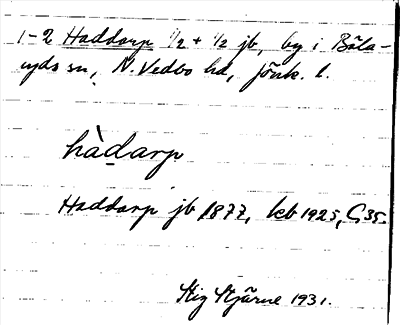 1-2 Haddarp 1/2 + 1/2 jb, by i Bäla-
ryds sn, N. Vedbo hd, Jönk. l.
hàda̲rp
Haddarp jb 1877, keb 1925, G35.
Stig Stjärne 1931.